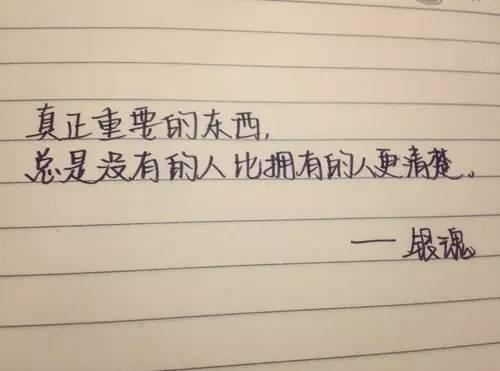 真正重要的东西,
总是没有的人比拥有的人更清楚。
——银魂